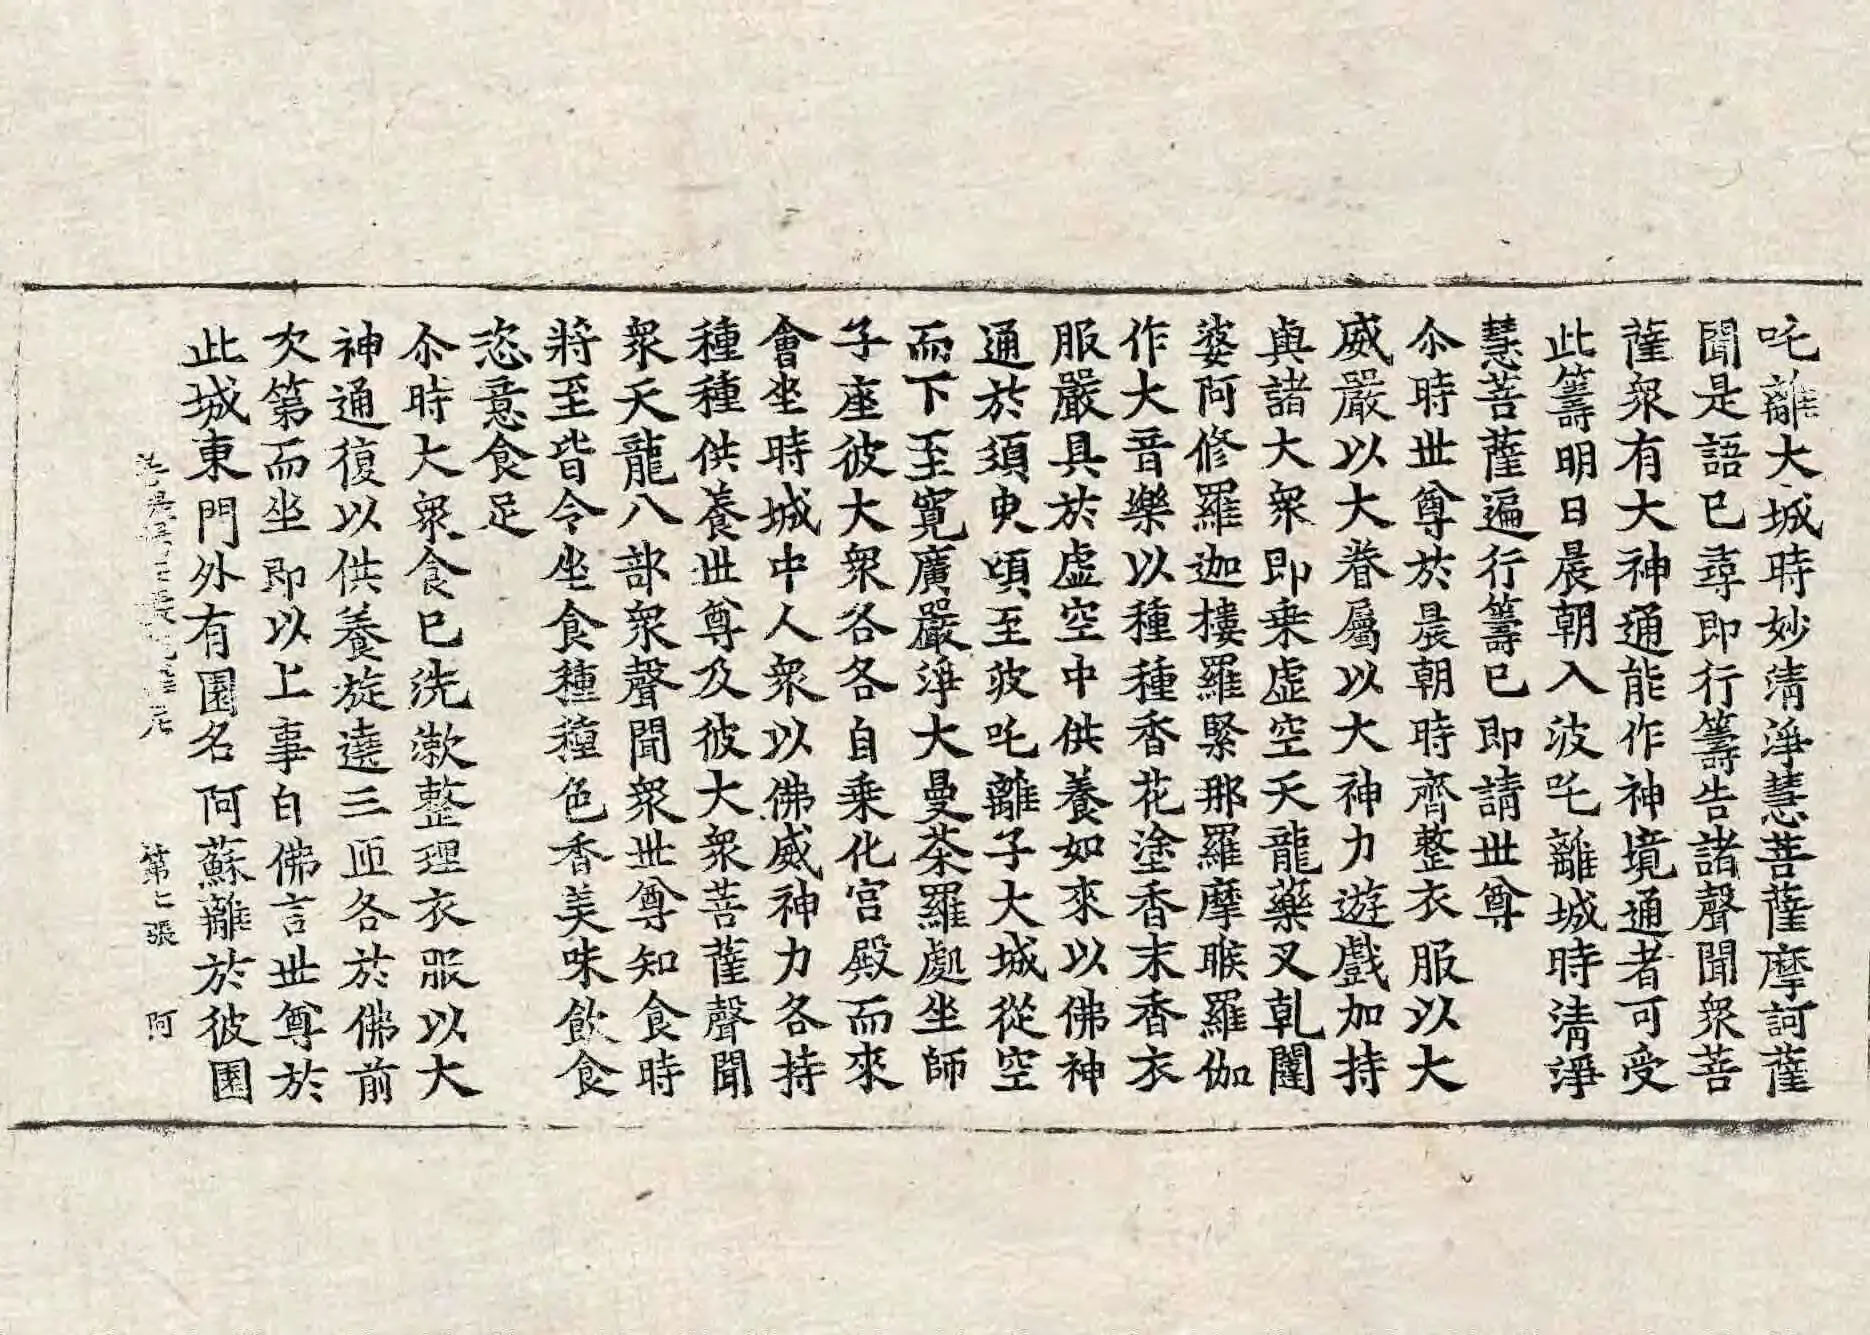 吒離大城時妙清淨慧菩薩摩訶薩
聞是語已尋即行籌告諸聲聞眾菩
薩眾有大神通能作神境通者可受
此籌明日晨朝入波吒離城時清淨
慧菩薩遍行籌已即請世尊
尒時世尊於晨朝時齊整衣服以大
威嚴以大眷屬以大神力遊戲加持
與諸大眾即乗虛空天龍藥叉乹闥
婆阿修羅迦樓羅緊那羅摩睺羅伽
作大音樂以種種香花塗香末香衣
服嚴具於虛空中供養如來以佛神
通於須臾頃至波吒離子大城從空
而下至寬廣嚴淨大曼茶羅處坐師
子座彼大眾各各自乗化宮殿而來
會坐時城中人眾以佛威神力各持
種種供養世尊及彼大眾菩薩聲聞
眾天龍八部眾聲聞眾世尊知食時
將至皆令坐食種種色香美味飲食
恣意食足
尒時大眾食已洗漱整理衣服以大
神通復以供養旋遶三匝各於佛前
次第而坐即以上事白佛言世尊於
此城東門外有園名阿蘇離於彼園
第七張 阿